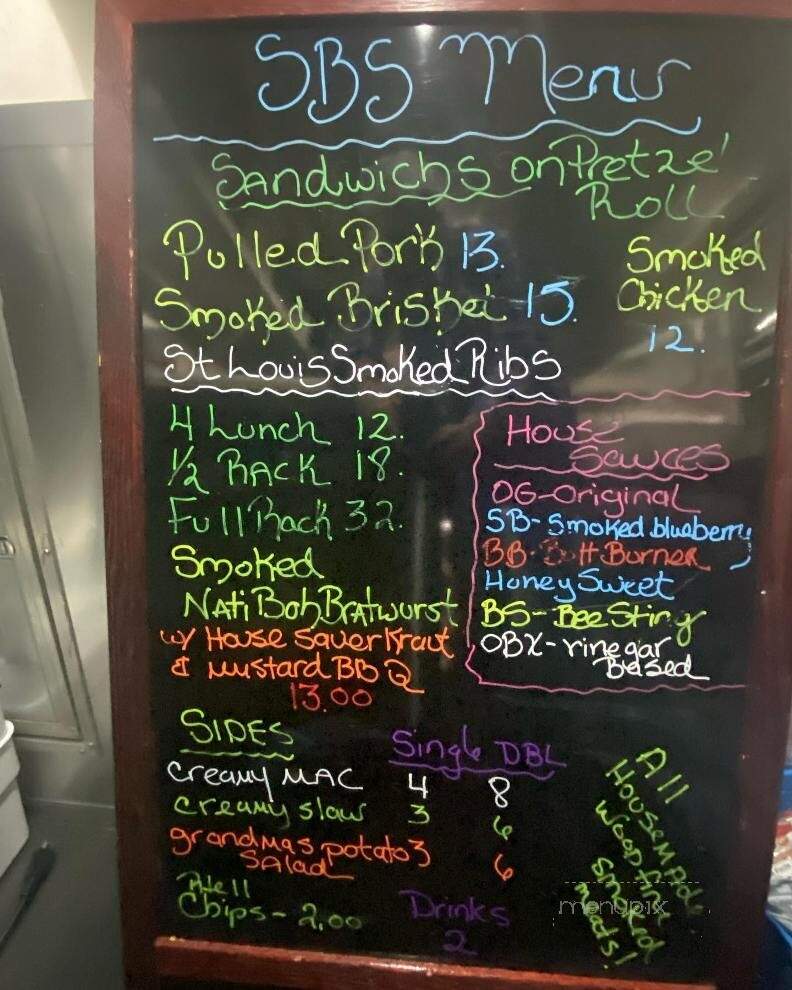 SBS Menu
Sandwichs on Pretze'
Roll
Pulled Pork 13.
Smoked Brisket 15.
Smoked
Chicken
12.
St Louis Smoked Ribs
4 Lunch 12.
1/2 RACK 18.
Full Rack 32.
Smoked
Nati Boh Bratwurst
w/ House Sauer Kraut
& Mustard BBQ
13.00
House
Sawces
OG-Original
SB-Smoked blueberry
BB-Butt Burner
Honey Sweet
BS-Bee Sting
OBX-vinegar
Based
SIDES
Single DBL
creamy MAC 4 8
creamy slaw 3 6
grandmas potato 3 6
SAlad
Chips - 2.00
Drinks
2
All
House Made
Wood Fired
Smoked
Meats!
menupix